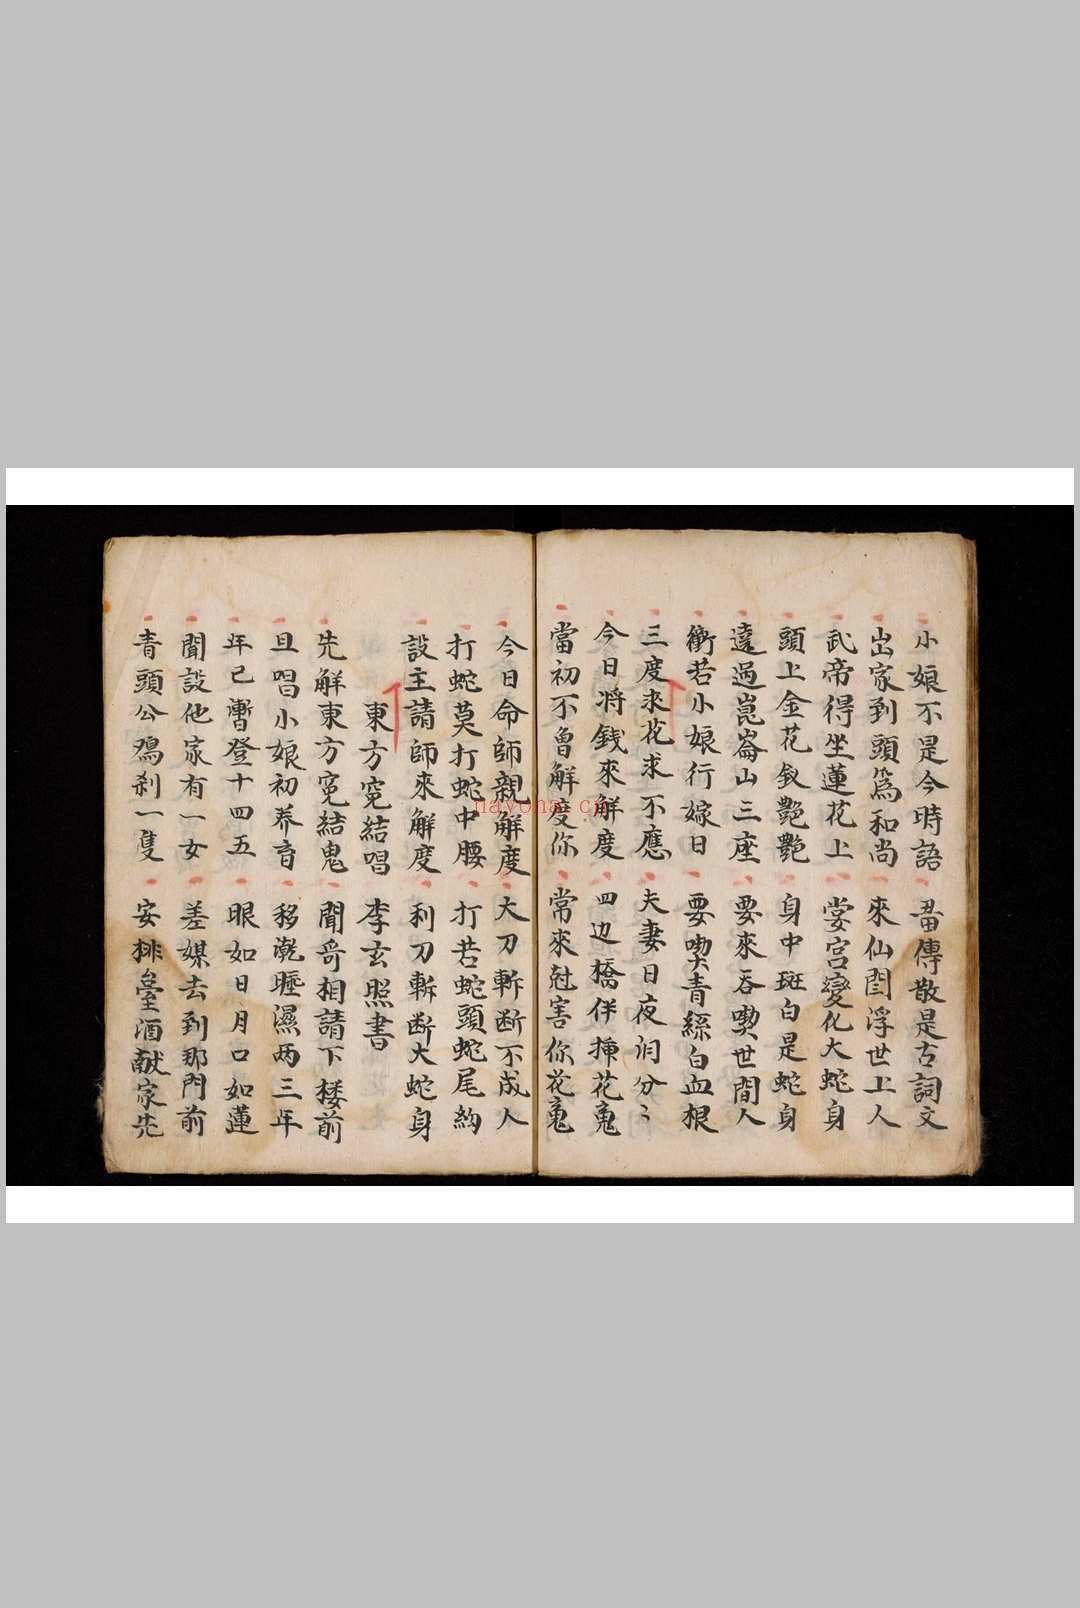 小娘不是今時語 畱傳散是古詞文
出家到頭為和尚 來仙閻浮世上人
武帝得坐蓮花上 堂宮變化大蛇身
頭上金花釵艷艷 身中斑白是蛇身
遠過崑崙山三座 要來吞喫世間人
衝若小娘行嫁日 要喫青絲白血根
三度來花求不應 夫妻日夜泪分〻
今日将錢來解度 四边橋伴揷花𡨚
當初不曾解度你 常來尅害你花𡨚
今日命師親解度 大刀斬断不成人
打蛇莫打蛇中腰 打若蛇頭蛇尾鈎
設主請師來解度 利刀斬断大蛇身
東方𡨚結唱 李玄照書
先解東方𡨚結鬼 聞哥相請下楼前
且唱小娘初养育 移乾睡濕两三年
年已暫登十四五 眼如日月口如蓮
聞說他家有一女 差媒去到那門前
青頭公鴂刹一隻 安排臺酒献家先
nayona.cn